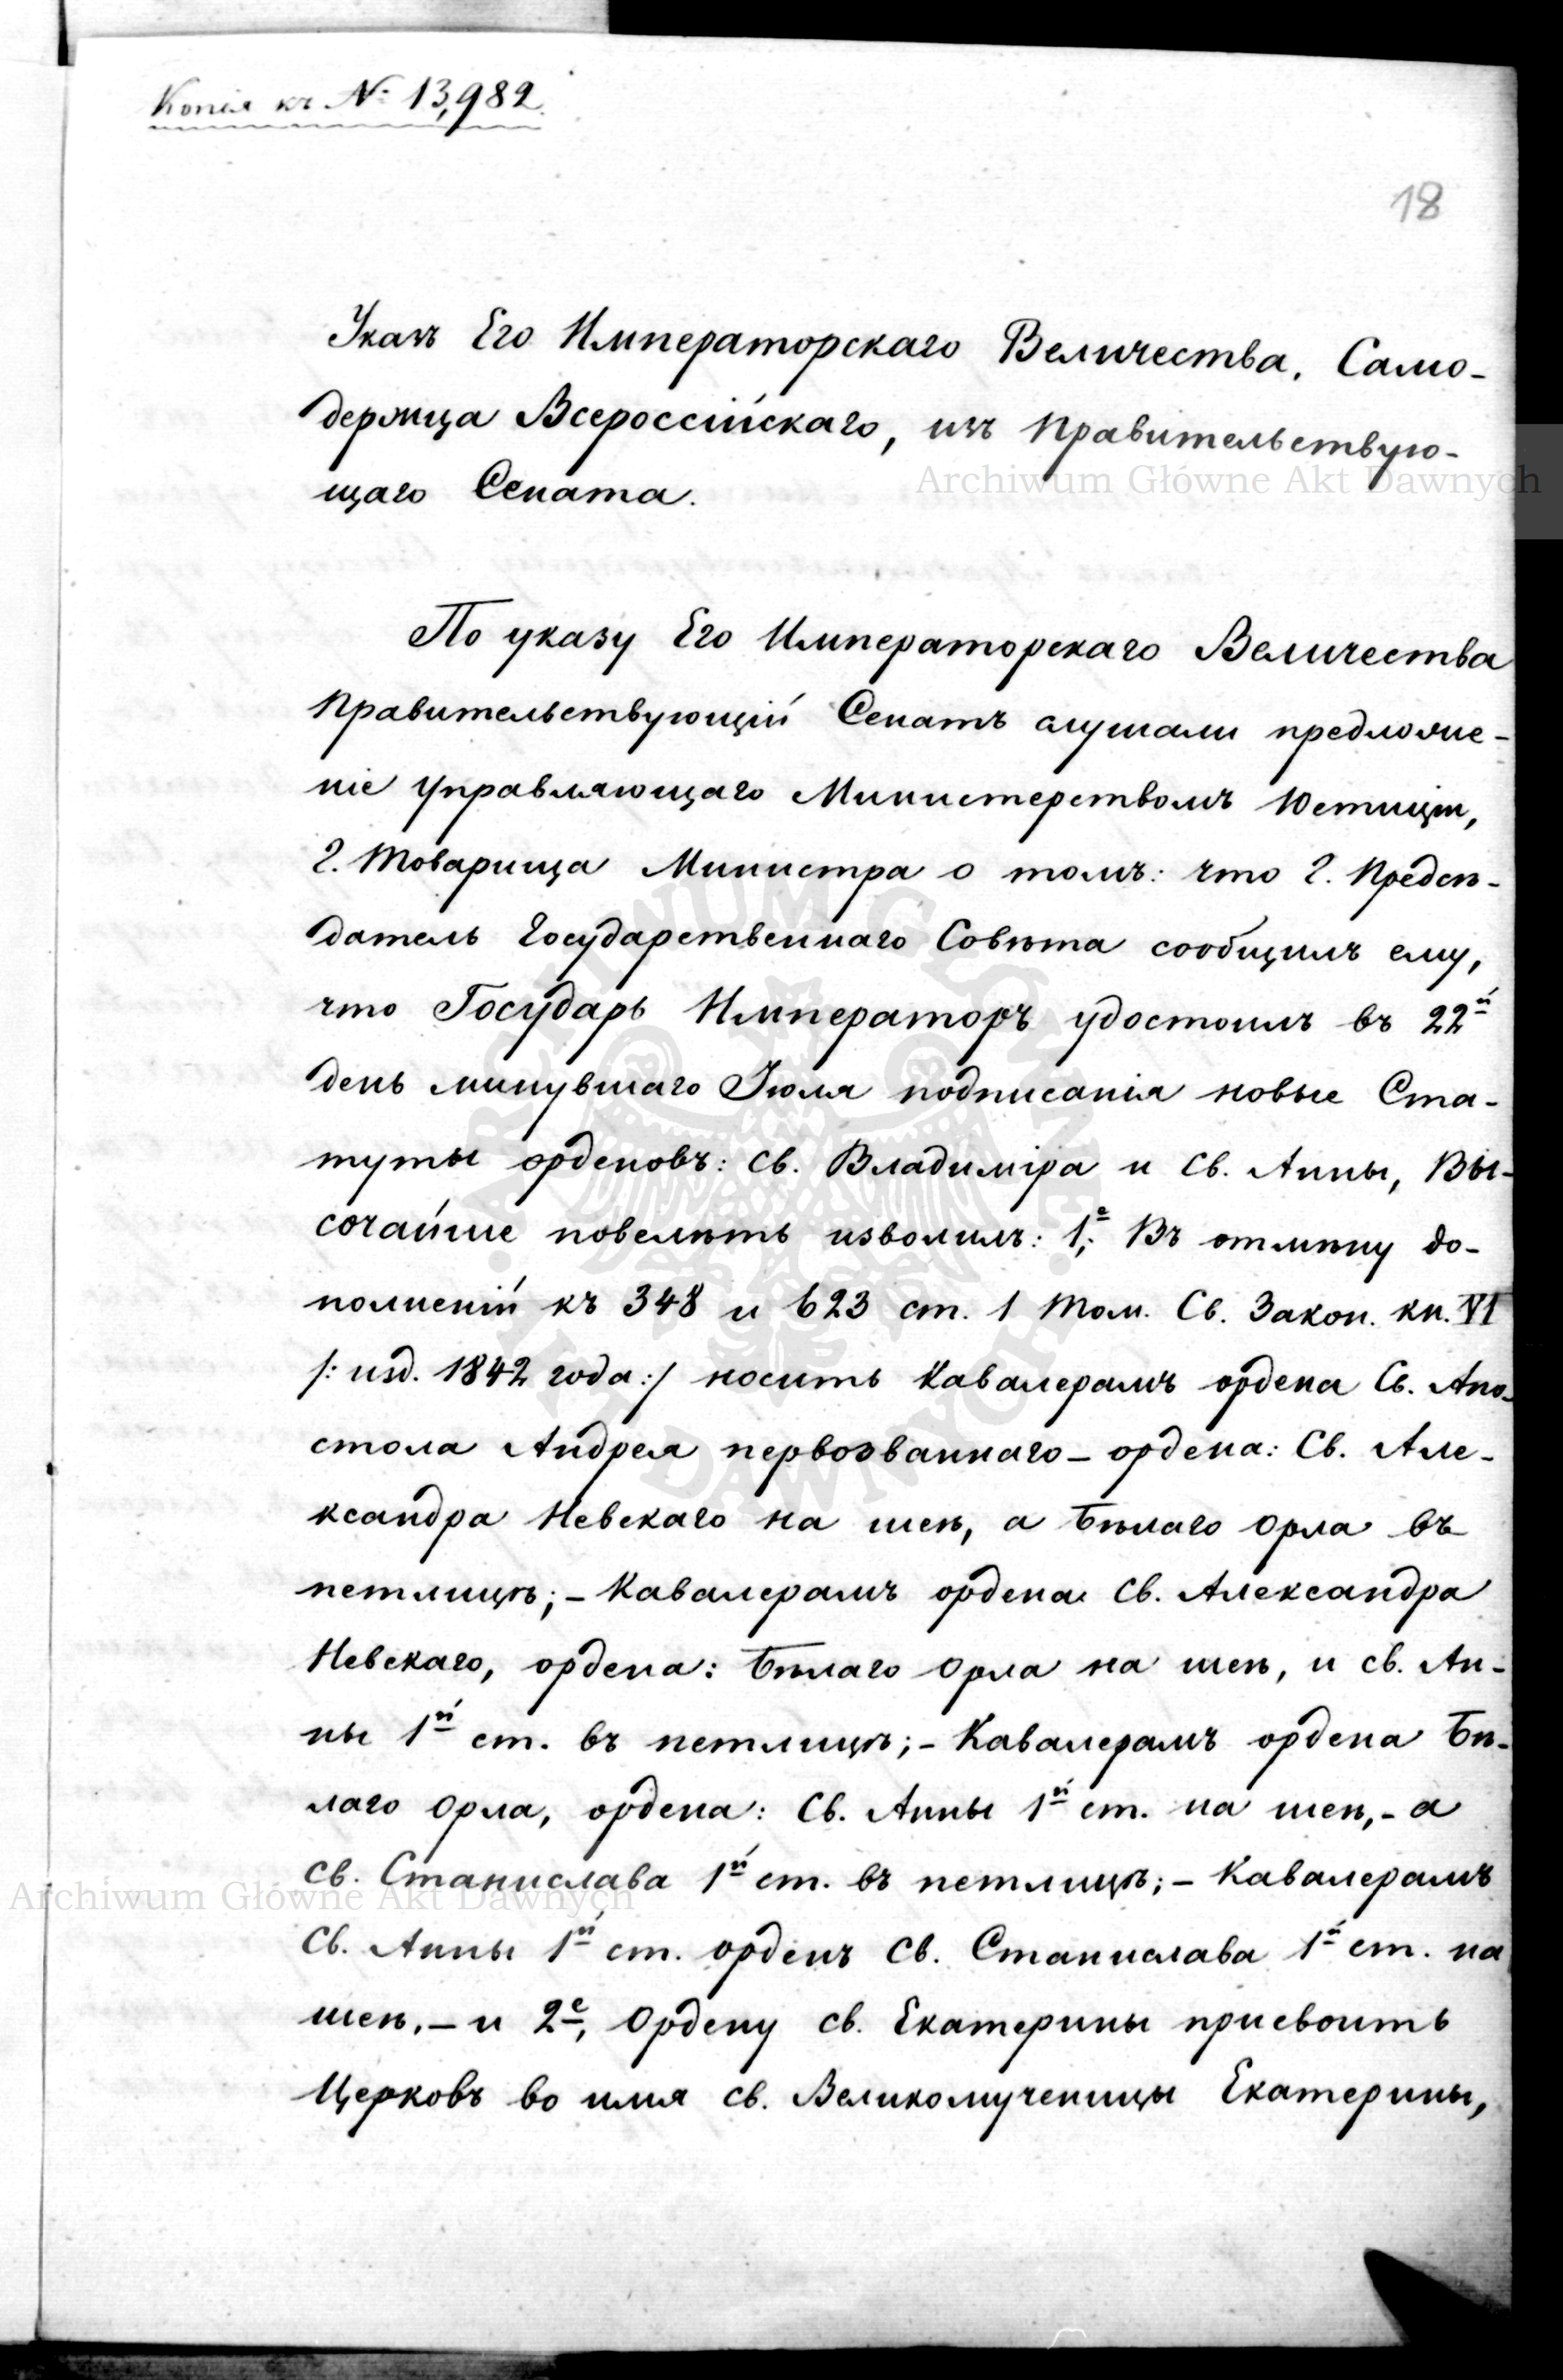 Копія къ № 13,982.
18
Указъ Его Императорскаго Величества, Само-
держца Всероссійскаго, изъ Правительствую-
щаго Сената.
По указу Его Императорскаго Величества
Правительствующій Сенатъ слушали предложе-
ніе Управляющаго Министерствомъ Юстиціи,
Г. Товарища Министра о томъ: что Г. Предсѣ-
датель Государственнаго Совѣта сообщилъ ему,
что Государь Императоръ удостоилъ въ 22й
день минувшаго Іюля подписанія новые Ста-
туты орденовъ: Св. Владиміра и Св. Анны, Вы-
сочайше повелѣть изволилъ: 1е, Въ отмѣну до-
полненій къ 348 и 623 ст. 1 Том. Св. Закон. кн. VI
/: изд. 1842 года :/ носить Кавалерамъ ордена Св. Апо-
стола Андрея первозваннаго – ордена: Св. Але-
ксандра Невскаго на шеѣ, а Бѣлаго Орла въ
петлицѣ; – Кавалерамъ ордена Св. Александра
Невскаго, ордена: Бѣлаго Орла на шеѣ, и Св. Ан-
ны 1й ст. въ петлицѣ; – Кавалерамъ ордена Бѣ-
лаго Орла, ордена: Св. Анны 1й ст. на шеѣ, – а
Св. Станислава 1й ст. въ петлицѣ; – Кавалерамъ
Св. Анны 1й ст. орденъ Св. Станислава 1й ст. на
шеѣ, – и 2е, Ордену Св. Екатерины присвоить
Церковь во имя Св. Великомученицы Екатерины,
Archiwum Główne Akt Dawnych
Archiwum Główne Akt Dawnych
ARCHIWUM GŁÓWNE AKT DAWNYCH